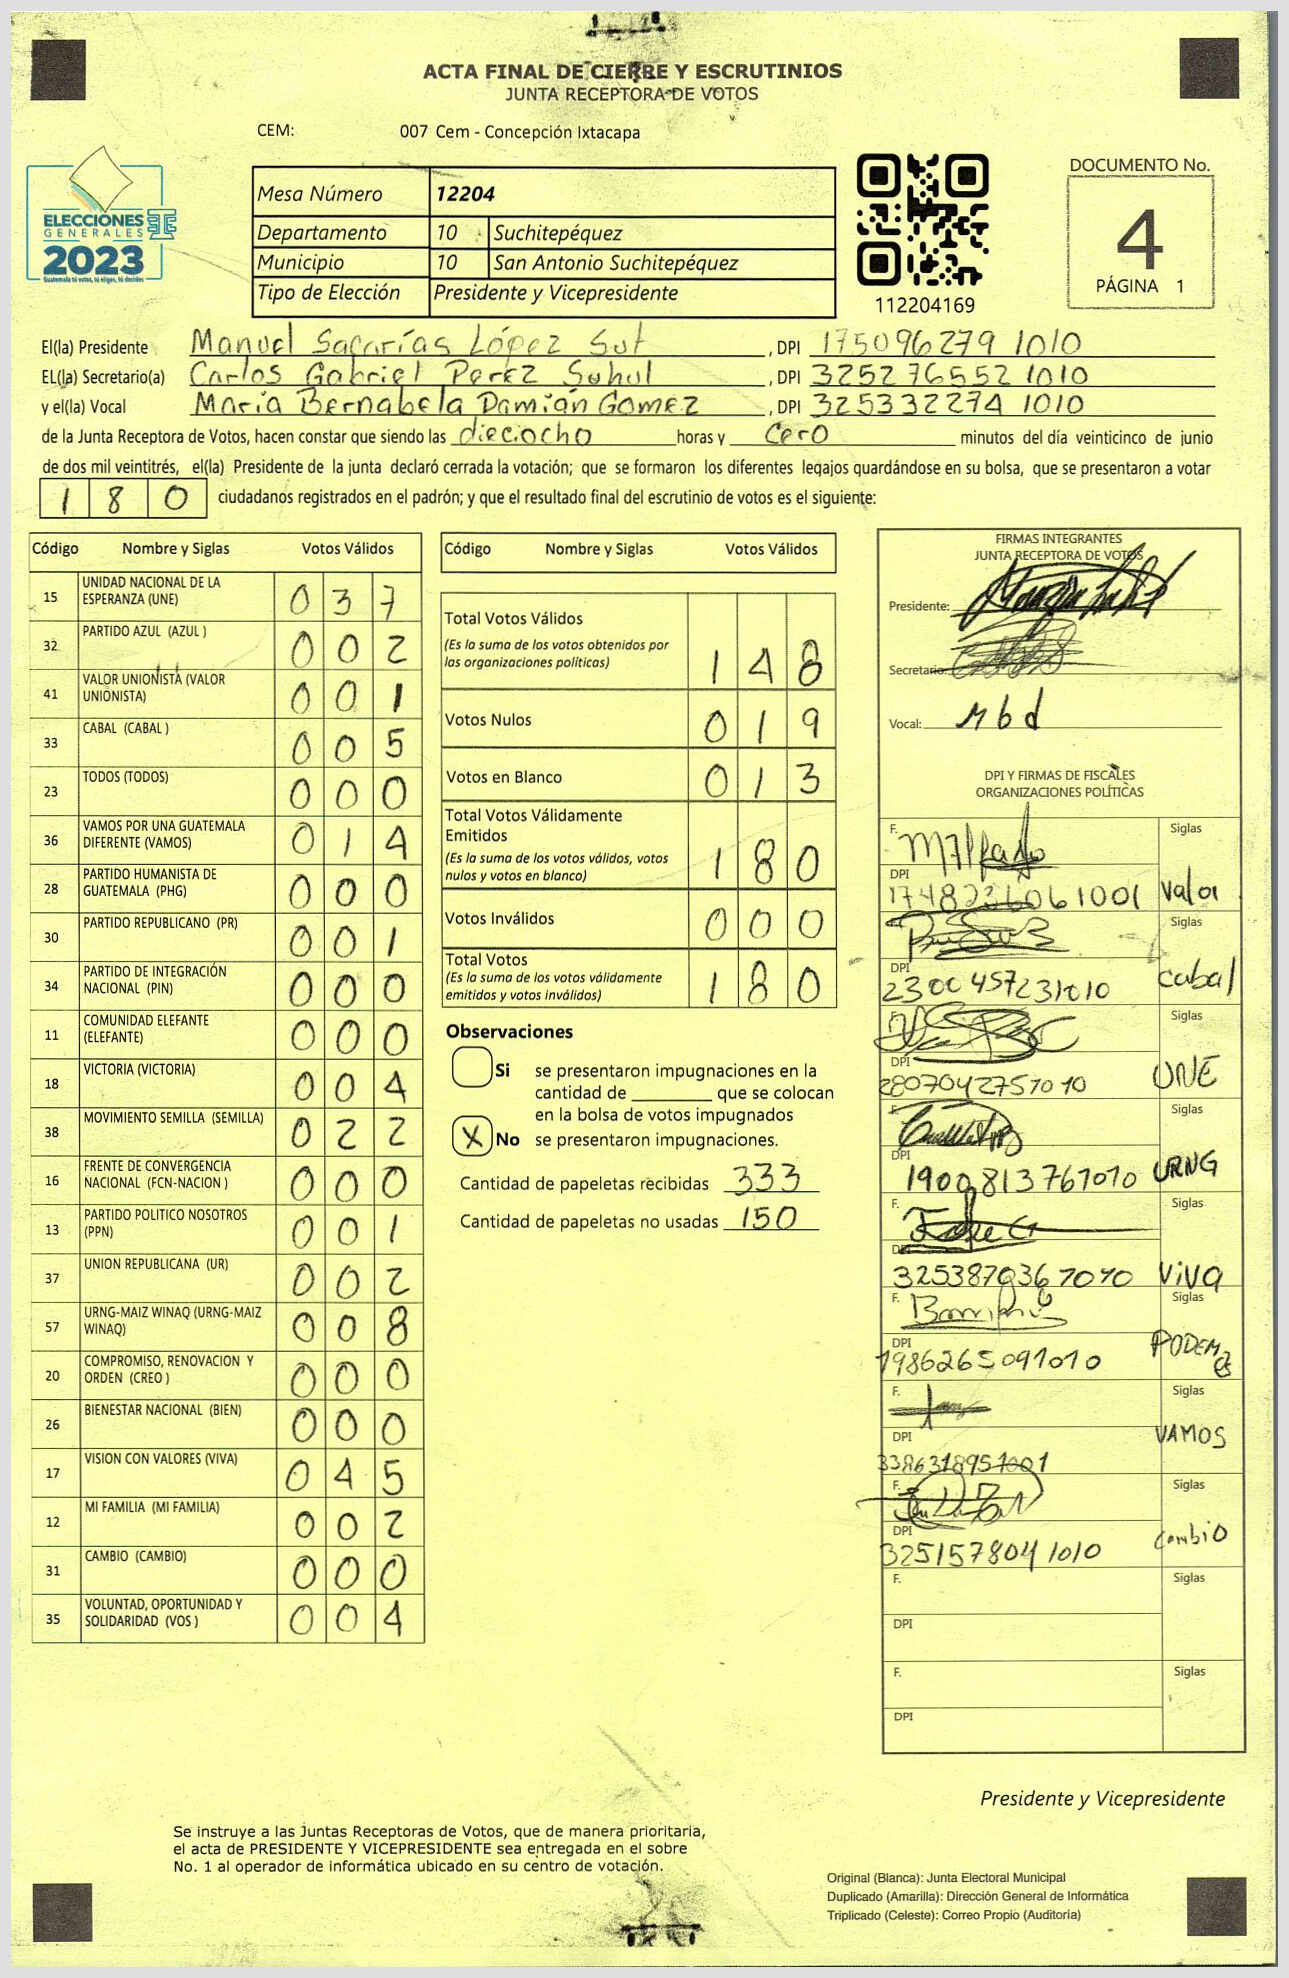 ACTA FINAL DE CIERRE Y ESCRUTINIOS
JUNTA RECEPTORA DE VOTOS
CEM: 007 Cem - Concepción Ixtacapa
ELECCIONES
GENERALES
2023
Guatemala tú votas, tú eliges, tú decides
Mesa Número 12204
Departamento 10 Suchitepéquez
Municipio 10 San Antonio Suchitepéquez
Tipo de Elección Presidente y Vicepresidente
112204169
DOCUMENTO No.
4
PÁGINA 1
El(la) Presidente Manuel Sacarías López Sut, DPI 175096279 1010
EL(la) Secretario(a) Carlos Gabriel Perez Suhul, DPI 325276552 1010
y el(la) Vocal María Bernabela Damián Gomez, DPI 325332274 1010
de la Junta Receptora de Votos, hacen constar que siendo las dieciocho horas y cero minutos del día veinticinco de junio
de dos mil veintitrés, el(la) Presidente de la junta declaró cerrada la votación; que se formaron los diferentes legajos guardándose en su bolsa, que se presentaron a votar
180 ciudadanos registrados en el padrón; y que el resultado final del escrutinio de votos es el siguiente:
Código Nombre y Siglas Votos Válidos
15 UNIDAD NACIONAL DE LA ESPERANZA (UNE) 037
32 PARTIDO AZUL (AZUL ) 002
41 VALOR UNIONISTA (VALOR UNIONISTA) 001
33 CABAL (CABAL ) 005
23 TODOS (TODOS) 000
36 VAMOS POR UNA GUATEMALA DIFERENTE (VAMOS) 014
28 PARTIDO HUMANISTA DE GUATEMALA (PHG) 000
30 PARTIDO REPUBLICANO (PR) 001
34 PARTIDO DE INTEGRACIÓN NACIONAL (PIN) 000
11 COMUNIDAD ELEFANTE (ELEFANTE) 000
18 VICTORIA (VICTORIA) 004
38 MOVIMIENTO SEMILLA (SEMILLA) 022
16 FRENTE DE CONVERGENCIA NACIONAL (FCN-NACION ) 000
13 PARTIDO POLITICO NOSOTROS (PPN) 001
37 UNION REPUBLICANA (UR) 002
57 URNG-MAIZ WINAQ (URNG-MAIZ WINAQ) 008
20 COMPROMISO, RENOVACION Y ORDEN (CREO ) 000
26 BIENESTAR NACIONAL (BIEN) 000
17 VISION CON VALORES (VIVA) 045
12 MI FAMILIA (MI FAMILIA) 002
31 CAMBIO (CAMBIO) 000
35 VOLUNTAD, OPORTUNIDAD Y SOLIDARIDAD (VOS ) 004
Código Nombre y Siglas Votos Válidos
Total Votos Válidos 148
(Es la suma de los votos obtenidos por
las organizaciones políticas)
Votos Nulos 019
Votos en Blanco 013
Total Votos Válidamente
Emitidos 180
(Es la suma de los votos válidos, votos
nulos y votos en blanco)
Votos Inválidos 000
Total Votos 180
(Es la suma de los votos válidamente
emitidos y votos inválidos)
Observaciones
Si se presentaron impugnaciones en la
cantidad de ________ que se colocan
en la bolsa de votos impugnados
X No se presentaron impugnaciones.
Cantidad de papeletas recibidas 333
Cantidad de papeletas no usadas 150
FIRMAS INTEGRANTES
JUNTA RECEPTORA DE VOTOS
Presidente:
Secretario:
Vocal: Mbd
DPI Y FIRMAS DE FISCALES
ORGANIZACIONES POLÍTICAS
F. Siglas
DPI
1748236061001 Valor
Siglas
DPI
2300457231010 Cabal
F. Siglas
DPI
2807042751010 UNE
F. Siglas
DPI
1900813761010 URNG
F. Siglas
DPI
3253870361010 ViVa
F. Siglas
DPI
1986265091010 PODEMOS
F. Siglas
DPI
3386318951001 VAMOS
F. Siglas
DPI
325157804 1010 Cambio
F. Siglas
DPI
F. Siglas
DPI
Presidente y Vicepresidente
Se instruye a las Juntas Receptoras de Votos, que de manera prioritaria,
el acta de PRESIDENTE Y VICEPRESIDENTE sea entregada en el sobre
No. 1 al operador de informática ubicado en su centro de votación.
Original (Blanca): Junta Electoral Municipal
Duplicado (Amarilla): Dirección General de Informática
Triplicado (Celeste): Correo Propio (Auditoría)